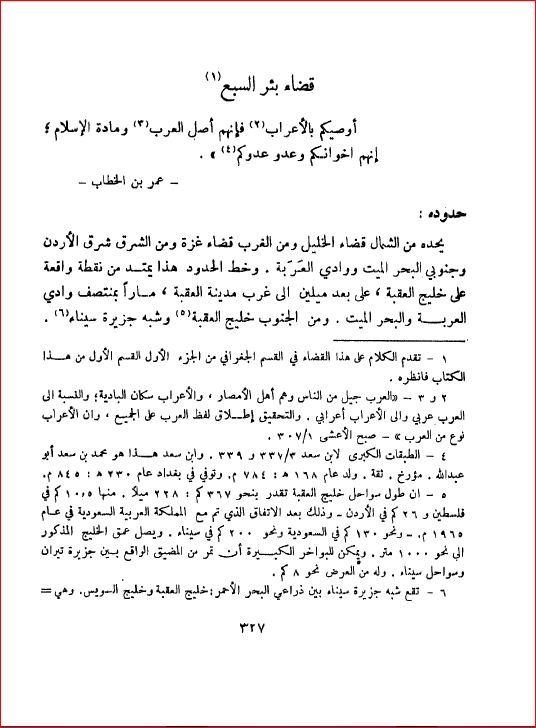 قضاء بئر السبع(١)
أوصيكم بالأعراب(٢) فإنهم أصل العرب(٣) ومادة الإسلام ؛
إنهم اخوانكم وعدو عدوكم(٤) » .
– عمر بن الخطاب –
حدوده :
يحده من الشمال قضاء الخليل ومن الغرب قضاء غزة ومن الشرق شرق الأردن
وجنوبي البحر الميت ووادي العَرَبة . وخط الحدود هذا يمتد من نقطة واقعة
على خليج العقبة ، على بعد ميلين الى غرب مدينة العقبة ، ماراً بمنتصف وادي
العربة والبحر الميت . ومن الجنوب خليج العقبة(٥) وشبه جزيرة سيناء(٦) .
١ – تقدم الكلام على هذا القضاء في القسم الجغرافي من الجزء الأول القسم الأول من هذا
الكتاب فانظره .
٢ و ٣ – «العرب جيل من الناس وهم أهل الأمصار ، والأعراب سكان البادية؛ والنسبة الى
العرب عربي والى الأعراب أعرابي . والتحقيق إطلاق لفظ العرب على الجميع ، وان الأعراب
نوع من العرب » – صبح الأعشى ٣٠٧/١ .
٤ – الطبقات الكبرى لابن سعد ٣٣٧/٣ و ٣٣٩ . وابن سعد هذا هو محمد بن سعد أبو
عبدالله . مؤرخ . ثقة . ولد عام ١٦٨ ه : ٧٨٤ م. وتوفي في بغداد عام ٢٣٠ ه : ٨٤٥ م.
٥ – ان طول سواحل خليج العقبة تقدر بنحو ٣٦٧ كم : ٢٢٨ ميلا . منها ١٠,٥ كم في
فلسطين و ٢٦ كم في الأردن – وذلك بعد الاتفاق الذي تم مع المملكة العربية السعودية في عام
١٩٦٥ م. – ونحو ١٣٠ كم في السعودية ونحو ٢٠٠ كم في سيناء . ويصل عمق الخليج المذكور
الى نحو ١٠٠٠ متر . ويمكن للبواخر الكبيرة أن تمر من المضيق الواقع بين جزيرة تيران
وسواحل سيناء . وله من العرض نحو ٨ كم .
٦ – تقع شبه جزيرة سيناء بين ذراعي البحر الأحمر: خليج العقبة وخليج السويس. وهي =
٣٢٧